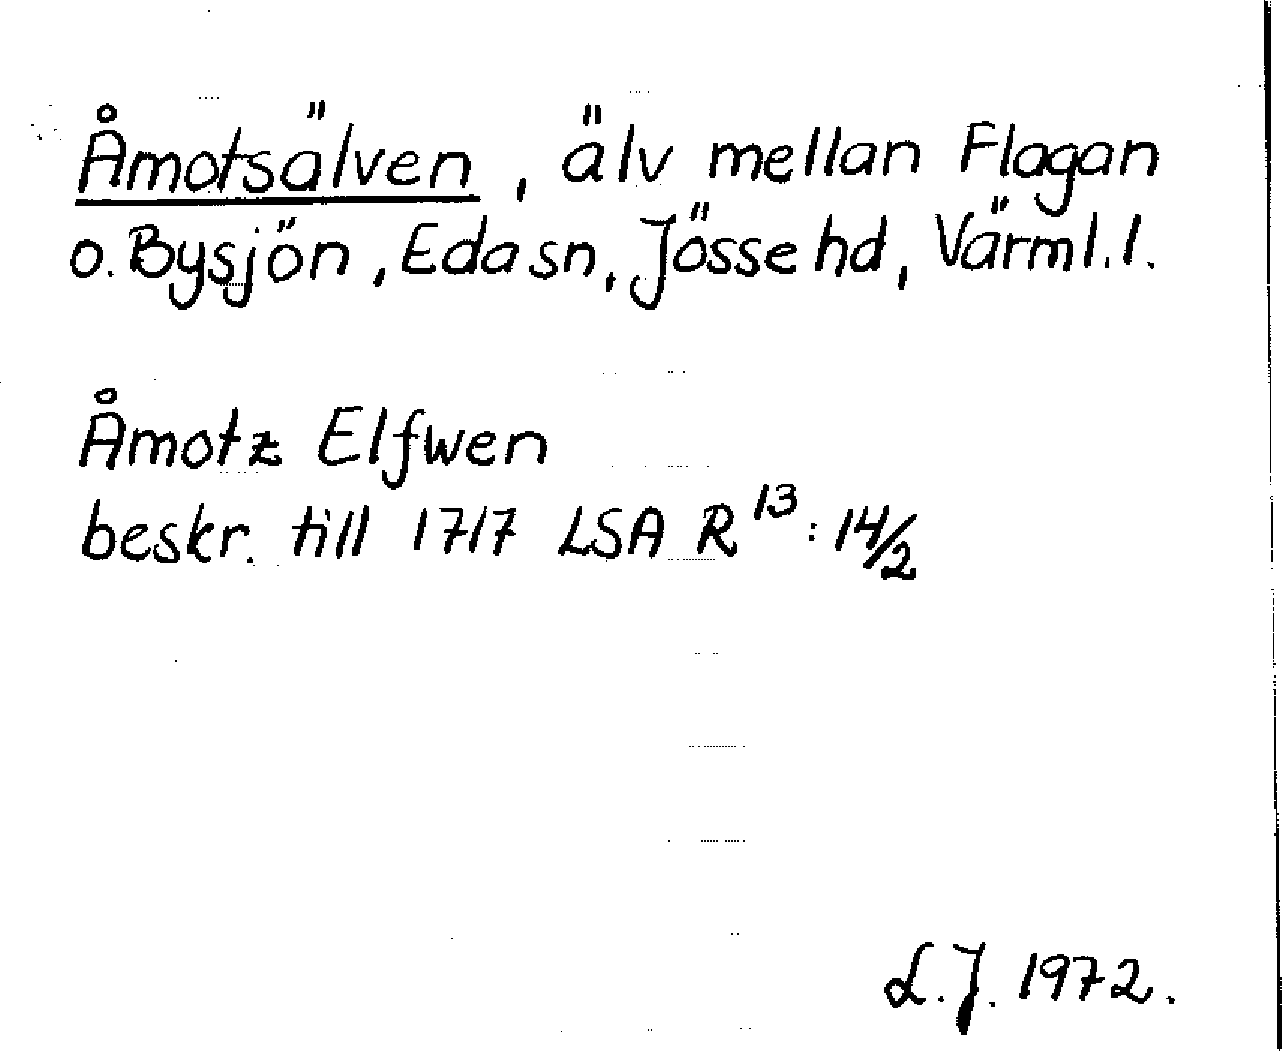 Åmotsälven, älv mellan Flagan
o. Bysjön, Eda sn, Jösse hd, Värml. l.
Åmotz Elfwen
beskr. till 1717 LSA R¹³: 14/2
L.J. 1972.